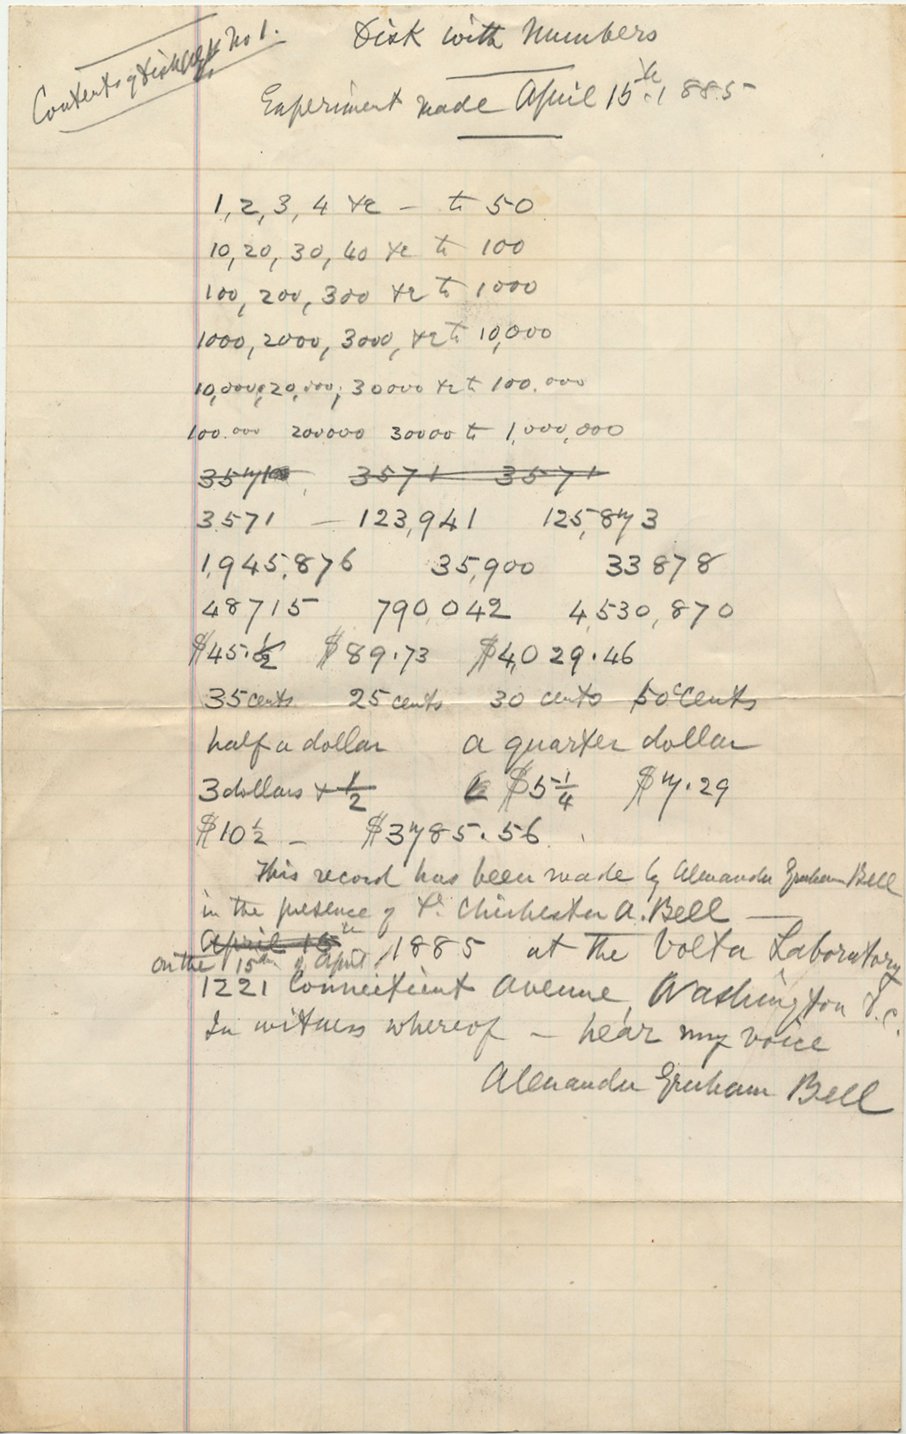 Contents of Disk No 1.
Disk with Numbers
Experiment made April 15th. 1885
1, 2, 3, 4 &c — to 50
10, 20, 30, 40 &c to 100
100, 200, 300 &c to 1000
1000, 2000, 3000, &c to 10,000
10,000, 20,000, 30000 &c to 100.000
100.000 200000 30000 to 1,000,000
3571 3571 3571
3571 — 123,941 125,873
1,945,876 35,900 33878
48715 790,042 4,530,870
$45.½ $89.73 $4,029.46
35 cents 25 cents 30 cents 50 cents
half a dollar a quarter dollar
3 dollars & ½ $5¼ $7.29
$10½ — $3785.56
This record has been made by Alexander Graham Bell
in the presence of Dr. Chichester A. Bell —
April 15th
on the 15th of April, 1885 at the Volta Laboratory
1221 Connecticut Avenue, Washington D.C.
In witness whereof — hear my voice
Alexander Graham Bell